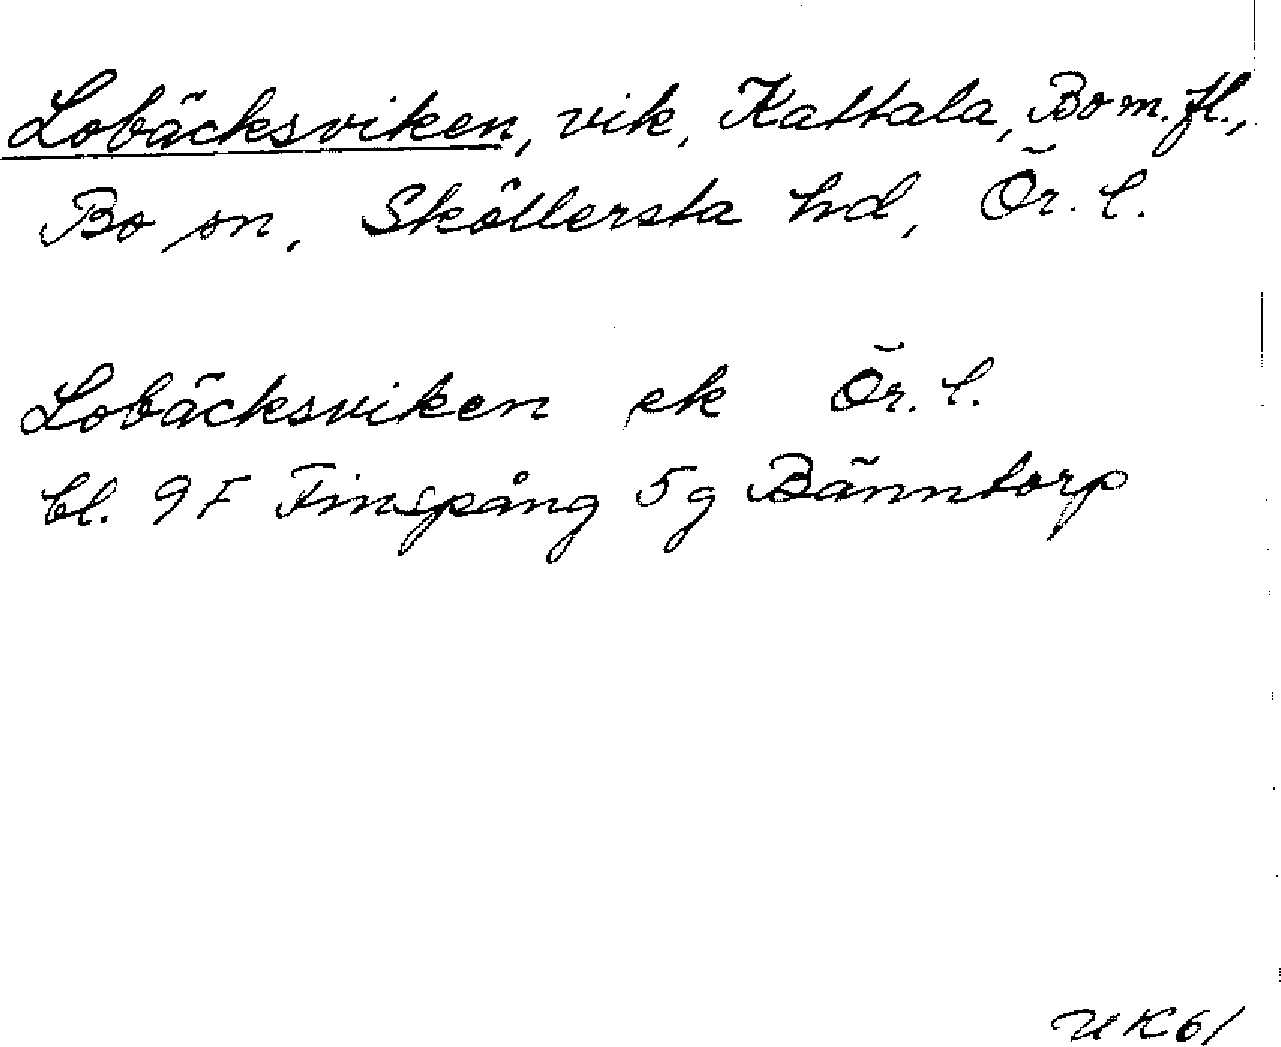 Lobäcksviken, vik, Kattala, Bo m. fl.,
Bo sn, Sköllersta hd, Ör. l.
Lobäcksviken ek Ör. l.
bl. 9F Finspång 5g Bänntorp
UK61